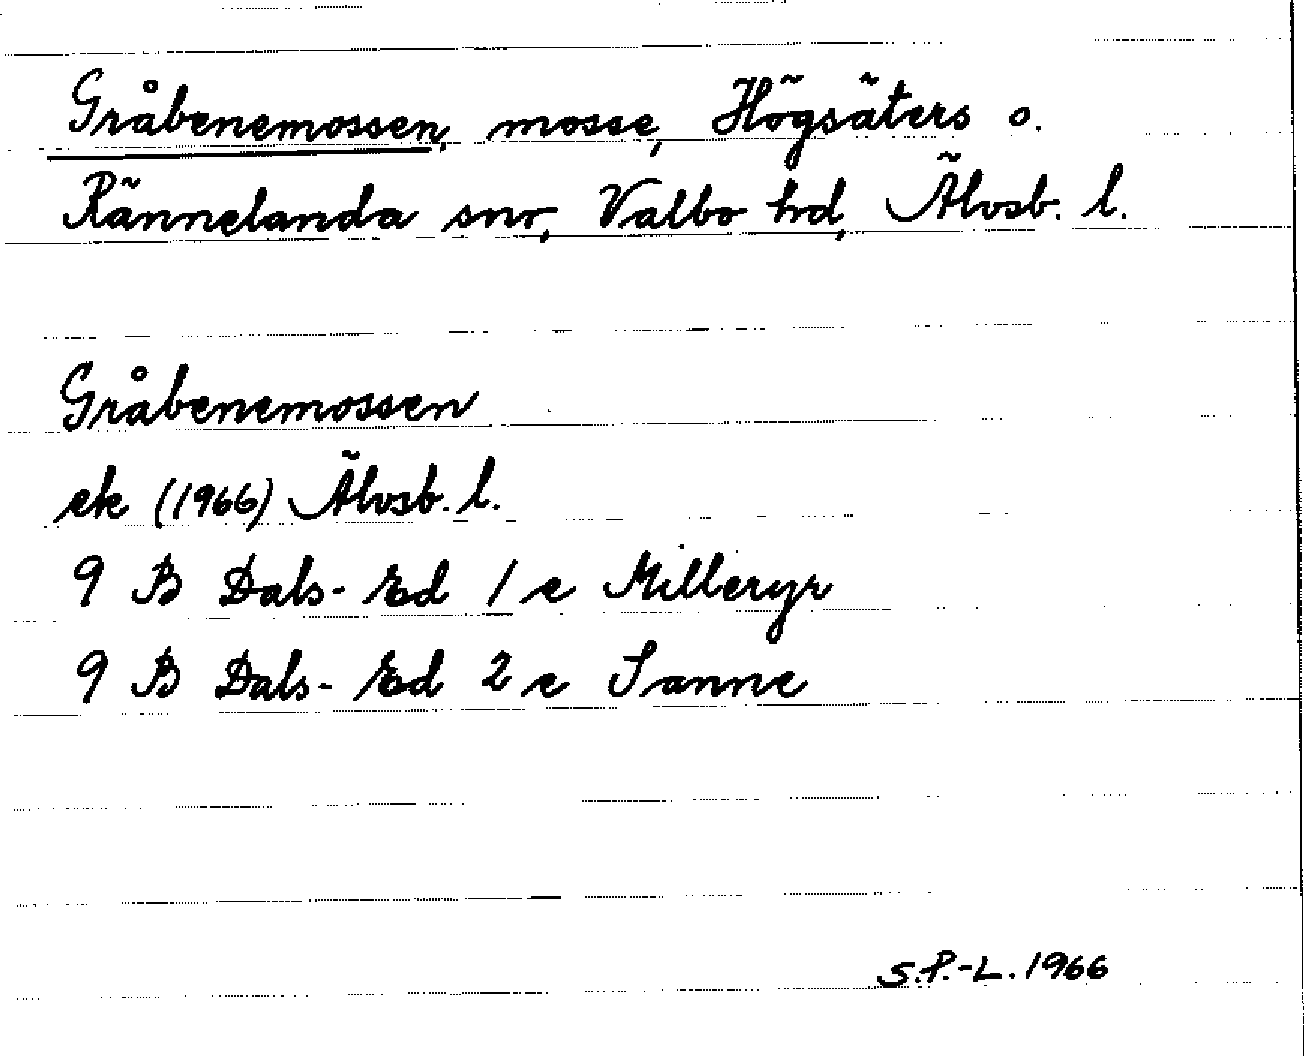 Gråbenemossen, mosse, Högsäters o.
Rännelanda snr, Valbo hd, Älvsb. l.
Gråbenemossen
ek (1966) Älvsb. l.
9 B Dals-Ed 1 e Milleryr
9 B Dals-Ed 2 e Sanne
S.P.-L. 1966